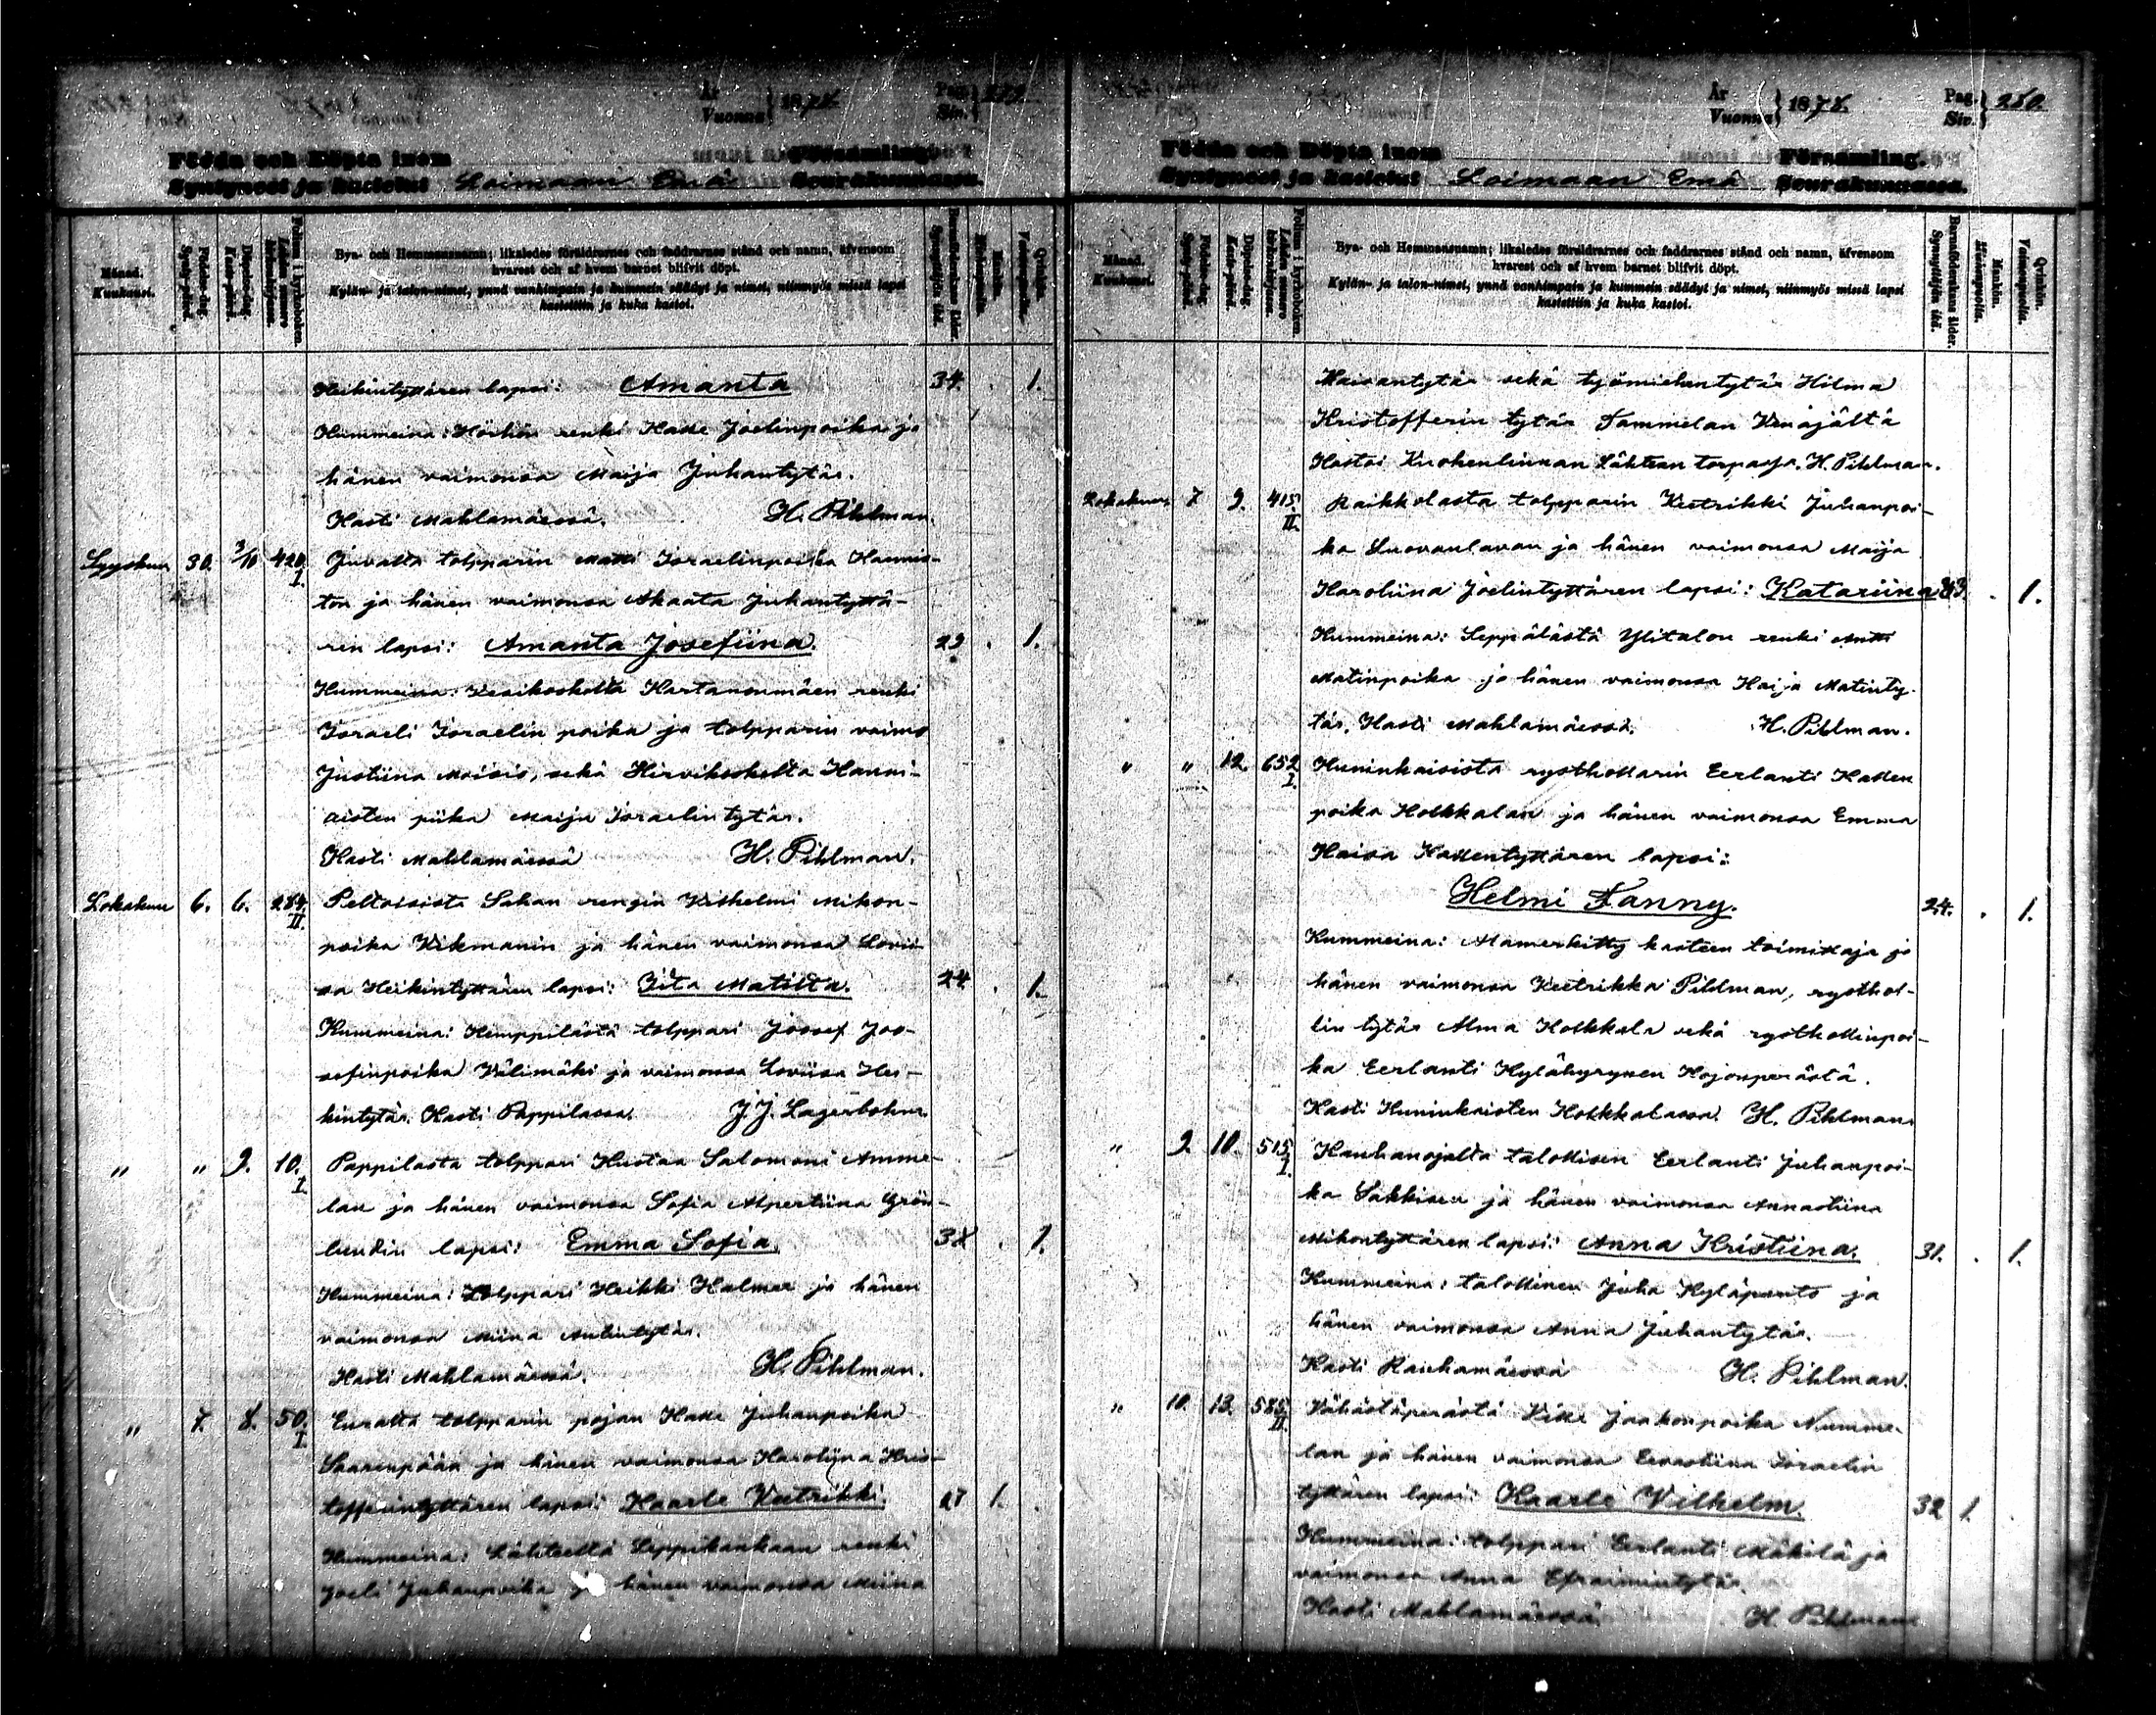 År
Vuonna } 1878.
Pag.
Siv. } 279
Födda och Döpta inom
Församling.
Syntyneet ja kastetut Loimaan Emä Seurakunnassa.
Månad.
Kuukausi.
Födelse-dag.
Synty-päivä.
Döpelse-dag.
Kaste-päivä.
Folium i kyrkoboken.
Lehden numero kirkonkirjassa.
Bya- och Hemmansnamn; likaledes föräldrarnes och faddrarnes stånd och namn, äfvensom
hvarest och af hvem barnet blifvit döpt.
Kylän- ja talon-nimet, ynnä vanhimpain ja kummein säädyt ja nimet, niinmyös missä lapsi
kastettiin ja kuka kastoi.
Barnföderskans ålder.
Synnyttäjän ikä.
Mankön.
Miehenpuolia.
Qvinkön.
Vaimonpuolia.
Heikintyttären lapsi: Amanta 34. . 1.
Kummeina: renki Kalle Joelinpoika ja
hänen vaimonsa Maija Juhantytär.
Kasti Mahlamäessä. H. Pihlman.
Syyskuu 30. 3/10 420. I. Juvalta tolpparin Matti Israelinpoika Hannis-
ton ja hänen vaimonsa Akaata Juhantyttä-
rin lapsi: Amanta Josefiina. 29 . 1.
Kummeina: Vesikoskelta Kartanonmäen renki
Israeli Israelin poika ja tolpparin vaimo
Justiina Moisio, sekä Hirvikoskelta Hanni-
aisten piika Maija Israelintytär.
Kasti Mahlamäessä H. Pihlman.
Lokakuu 6. 6. 284. II. Peltoisista Sahan rengin Vilhelmi Mikon-
poika Vikmanin ja hänen vaimonsa Lovii-
sa Heikintyttären lapsi: Iita Matilta. 24 . 1.
Kummeina: Kemppilästä tolppari Joosef Joo-
sefinpoika Välimäki ja vaimonsa Loviisa Hei-
kintytär. Kasti Pappilassa. J J. Lagerbohm
" " 9. 10. I. Pappilasta tolppari Kustaa Salomoni Amme-
lan ja hänen vaimonsa Sofia Alpertiina Grön-
lundin lapsi: Emma Sofia. 38 . 1.
Kummeina: Tolppari Heikki Halmer ja hänen
vaimonsa Miina Antintytär.
Kasti Mahlamäessä. H. Pihlman.
" 7. 8. 50. I. Euralta tolpparin pojan Kalle Juhanpoika
Saarenpään ja hänen vaimonsa Karoliina Kris-
tofferintyttären lapsi: Kaarle Veetrikki. 27 1. .
Kummeina: Lähteeltä Leppikankaan renki
Joeli Juhanpoika ja hänen vaimonsa Miina
År
Vuonna } 1878.
Pag.
Siv. } 280.
Födda och Döpta inom
Församling.
Syntyneet ja kastetut Loimaan Emä Seurakunnassa.
Månad.
Kuukausi.
Födelse-dag.
Synty-päivä.
Döpelse-dag.
Kaste-päivä.
Folium i kyrkoboken.
Lehden numero kirkonkirjassa.
Bya- och Hemmansnamn; likaledes föräldrarnes och faddrarnes stånd och namn, äfvensom
hvarest och af hvem barnet blifvit döpt.
Kylän- ja talon-nimet, ynnä vanhimpain ja kummein säädyt ja nimet, niinmyös missä lapsi
kastettiin ja kuka kastoi.
Barnföderskans ålder.
Synnyttäjän ikä.
Mankön.
Miehenpuolia.
Qvinkön.
Vaimonpuolia.
Kaisantytär sekä työmiehentytär Hilma
Kristofferin tytär Tammelan Venäjältä
Kastoi Kuokenlinnan Lähteen torpassa. H. Pihlman.
Lokakuu 7 9. 415. II. Raikkolasta tolpparin Veetrikki Juhanpoi-
ka Luovanlavan ja hänen vaimonsa Maija
Karoliina Joelintyttären lapsi: Katariina 33. . 1.
Kummeina: Seppälästä Ylitalon renki Antti
Matinpoika ja hänen vaimonsa Kaija Matinty-
tär. Kasti Mahlamäessä. H. Pihlman.
" " 12. 652. I. Kuninkaisista rysthollarin Eerlanti Kallen
poika Kolkkalan ja hänen vaimonsa Emma
Kaisa Kallentyttären lapsi:
Helmi Fanny. 24. . 1.
Kummeina: Alamerkitty kasteen toimittaja ja
hänen vaimonsa Veetrikka Pihlman, rysthol-
lin tytär Alma Kolkkala sekä rysthollinpoi-
ka Eerlanti Kylähyrynen Kojonperästä.
Kasti Kuninkaisten Kolkkalassa. H. Pihlman.
" 9 10. 515. I. Kauhanojalta talollisen Eerlanti Juhanpoi-
ka Sakkisen ja hänen vaimonsa Annastiina
Mikontyttären lapsi: Anna Kristiina. 31. . 1.
Kummeina: talollinen Juha Kyläpunto ja
hänen vaimonsa Anna Juhantytär.
Kasti Rauhamäessä H. Pihlman.
" 10. 13. 585. II. Vähästäperästä Ville Jaakonpoika Numme-
lan ja hänen vaimonsa Eevastiina Israelin
tyttären lapsi: Kaarle Vilhelm. 32 1.
Kummeina: tolppari Eerlanti Mäkilä ja
vaimonsa Anna Efraimintytär.
Kasti Mahlamäessä. H. Pihlman